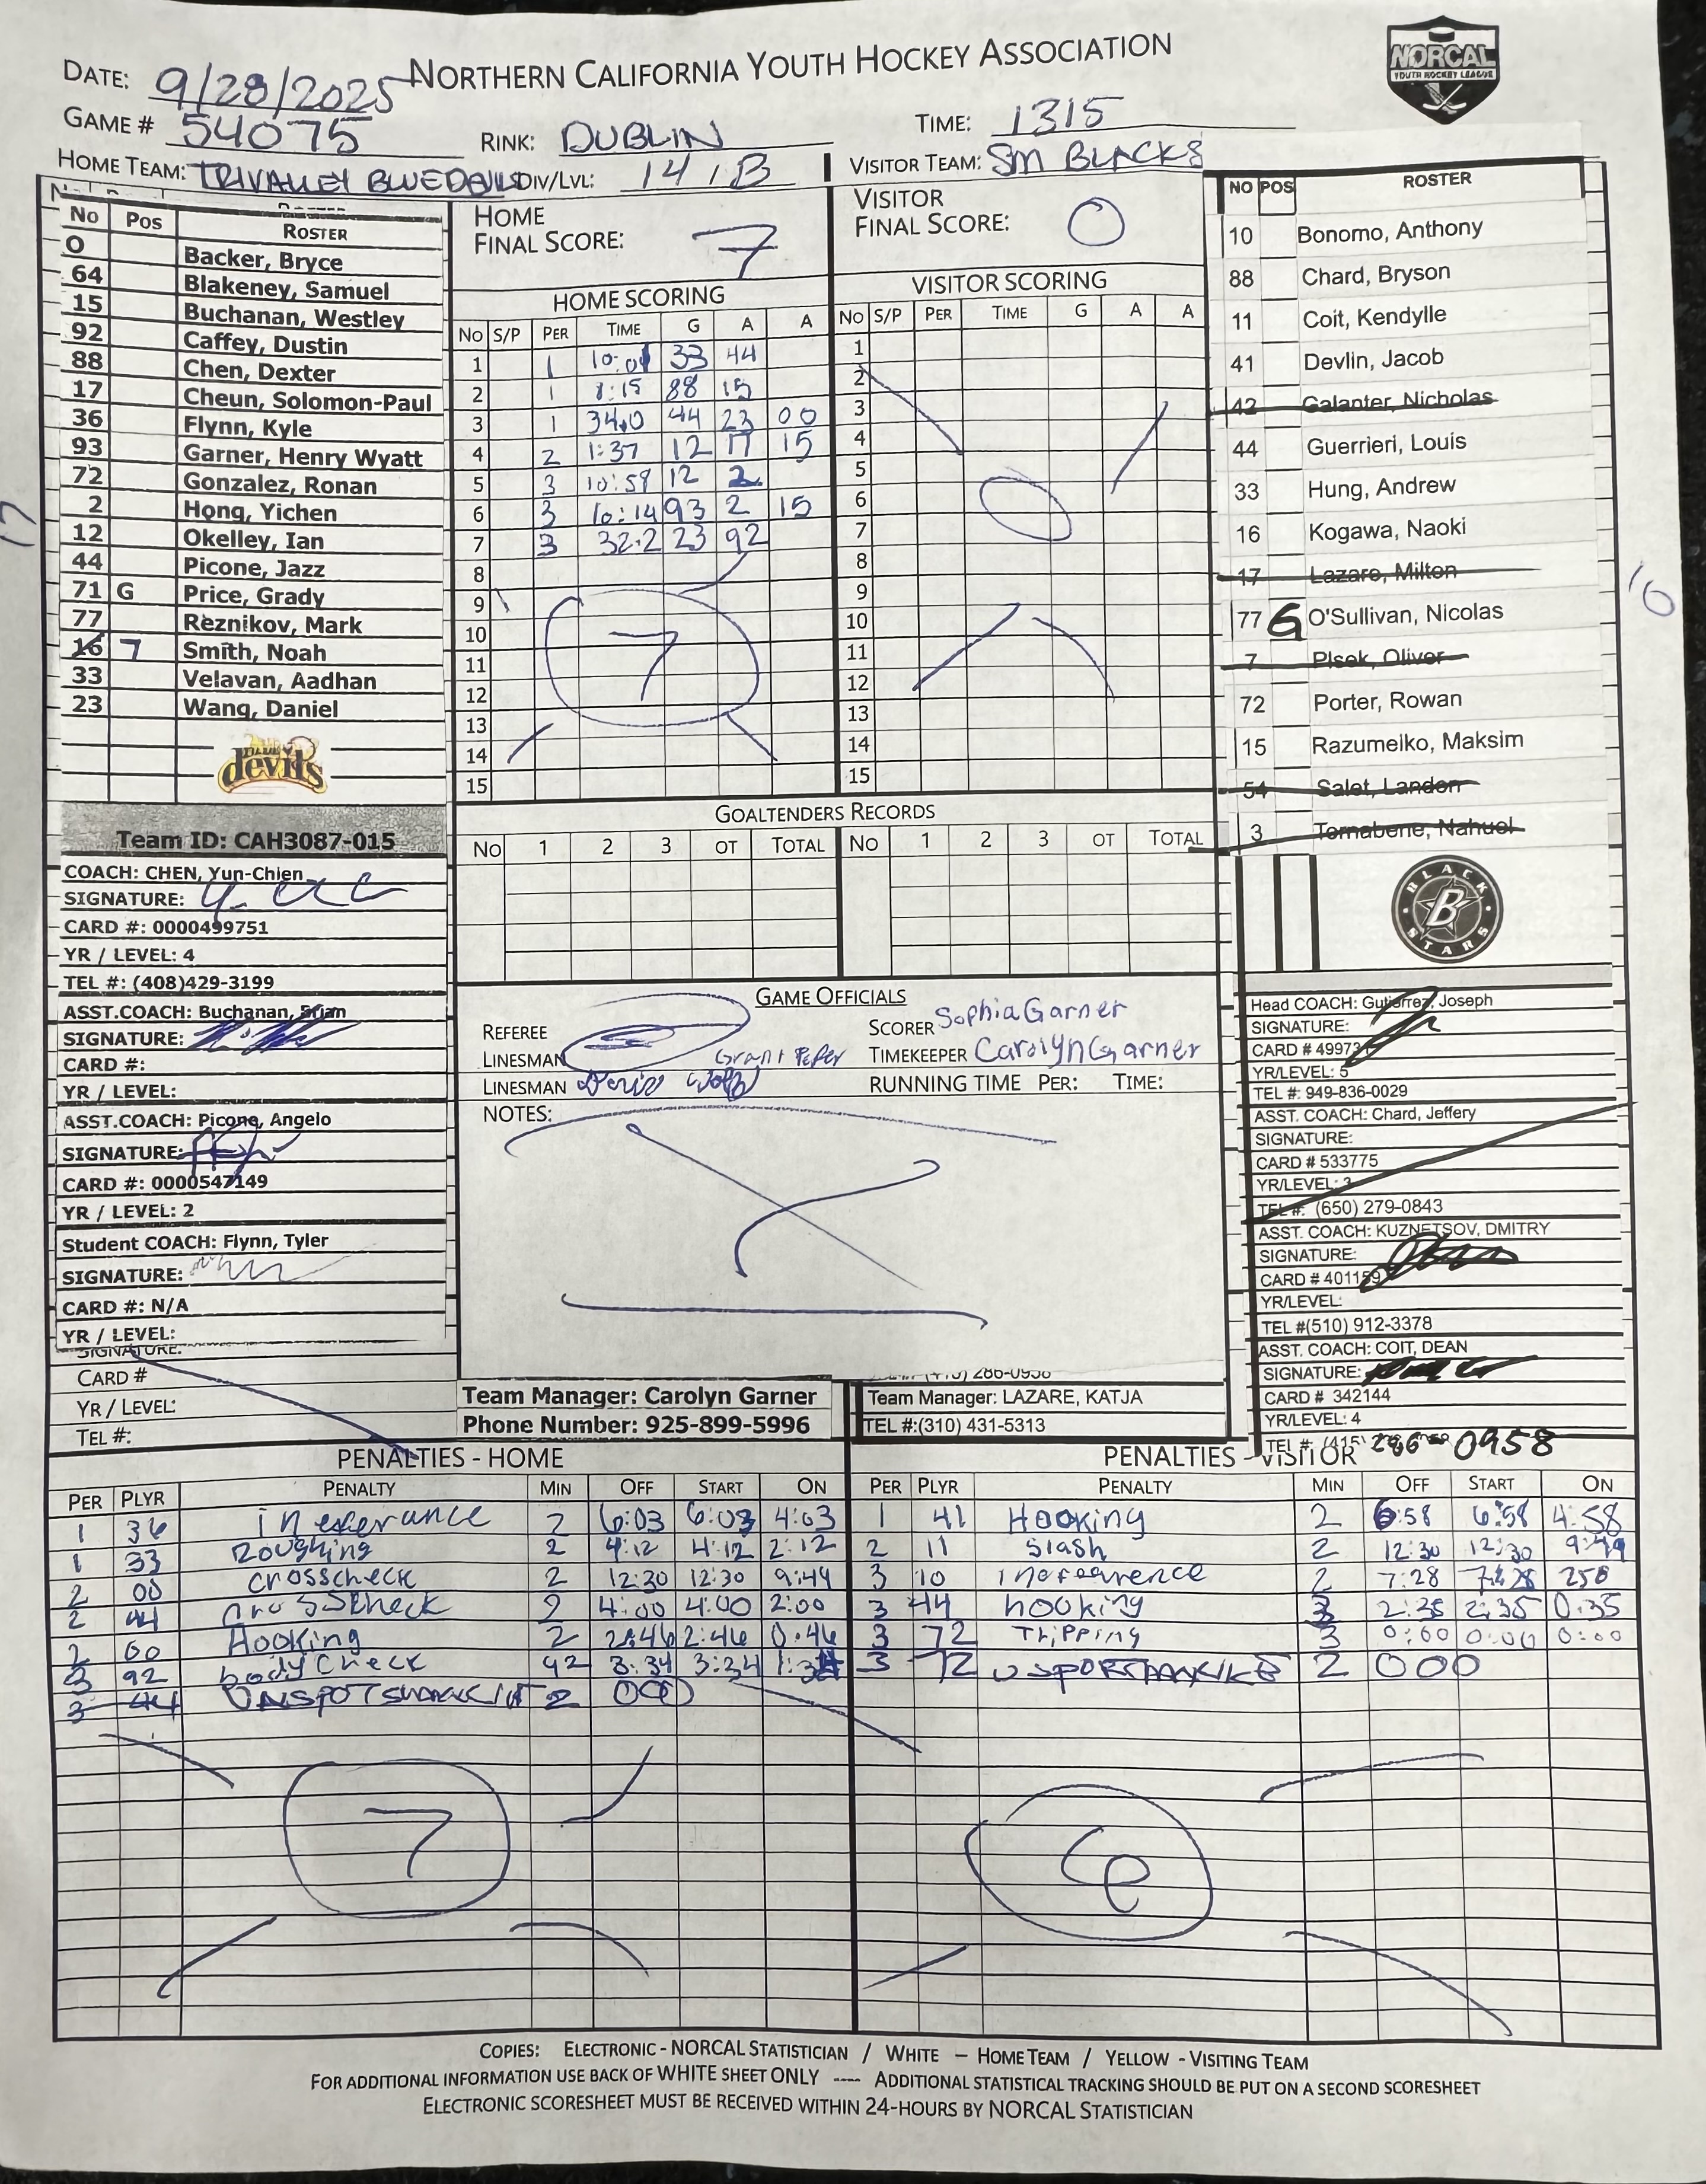 NORTHERN CALIFORNIA YOUTH HOCKEY ASSOCIATION
NORCAL
YOUTH HOCKEY LEAGUE
DATE: 9/28/2025
GAME # 54075 RINK: DUBLIN TIME: 1315
HOME TEAM: TRIVALLEY BLUEDEVILS DIV/LVL: 14 / B VISITOR TEAM: SM BLACKS
No Pos ROSTER
0 Backer, Bryce
64 Blakeney, Samuel
15 Buchanan, Westley
92 Caffey, Dustin
88 Chen, Dexter
17 Cheun, Solomon-Paul
36 Flynn, Kyle
93 Garner, Henry Wyatt
72 Gonzalez, Ronan
2 Hong, Yichen
12 Okelley, Ian
44 Picone, Jazz
71 G Price, Grady
77 Reznikov, Mark
16 7 Smith, Noah
33 Velavan, Aadhan
23 Wang, Daniel
17
devils
HOME
FINAL SCORE: 7
HOME SCORING
No S/P PER TIME G A A
1 1 10:01 33 44
2 1 8:15 88 15
3 1 34.0 44 23 00
4 2 1:37 12 17 15
5 3 10:58 12 2
6 3 10:14 93 2 15
7 3 32.2 23 92
8
9
10
11
12
13
14
15
7
VISITOR
FINAL SCORE: 0
VISITOR SCORING
No S/P PER TIME G A A
1
2
3
4
5
6
7
8
9
10
11
12
13
14
15
0
NO POS ROSTER
10 Bonomo, Anthony
88 Chard, Bryson
11 Coit, Kendylle
41 Devlin, Jacob
42 Galanter, Nicholas
44 Guerrieri, Louis
33 Hung, Andrew
16 Kogawa, Naoki
17 Lazare, Milton
77 G O'Sullivan, Nicolas
7 Plsek, Oliver
72 Porter, Rowan
15 Razumeiko, Maksim
54 Salet, Landon
3 Tornabene, Nahuel
10
BLACK STARS
B
GOALTENDERS RECORDS
No 1 2 3 OT TOTAL No 1 2 3 OT TOTAL
Team ID: CAH3087-015
COACH: CHEN, Yun-Chien
SIGNATURE:
CARD #: 0000499751
YR / LEVEL: 4
TEL #: (408)429-3199
ASST.COACH: Buchanan, Brian
SIGNATURE:
CARD #:
YR / LEVEL:
ASST.COACH: Picone, Angelo
SIGNATURE:
CARD #: 0000547149
YR / LEVEL: 2
Student COACH: Flynn, Tyler
SIGNATURE:
CARD #: N/A
YR / LEVEL:
SIGNATURE:
CARD #
YR / LEVEL:
TEL #:
GAME OFFICIALS
REFEREE SCORER Sophia Garner
LINESMAN Grant TIMEKEEPER Carolyn Garner
LINESMAN RUNNING TIME PER: TIME:
NOTES:
Team Manager: Carolyn Garner
Phone Number: 925-899-5996
286-0958
Team Manager: LAZARE, KATJA
TEL #:(310) 431-5313
Head COACH: Gutierrez, Joseph
SIGNATURE:
CARD # 49973
YR/LEVEL: 5
TEL #: 949-836-0029
ASST. COACH: Chard, Jeffery
SIGNATURE:
CARD # 533775
YR/LEVEL: 3
TEL #: (650) 279-0843
ASST. COACH: KUZNETSOV, DMITRY
SIGNATURE:
CARD # 401159
YR/LEVEL:
TEL #(510) 912-3378
ASST. COACH: COIT, DEAN
SIGNATURE:
CARD # 342144
YR/LEVEL: 4
TEL #: (415) 286-0958
PENALTIES - HOME
PER PLYR PENALTY MIN OFF START ON
1 36 inexferance 2 6:03 6:03 4:03
1 33 Roughing 2 4:12 4:12 2:12
2 00 crosscheck 2 12:30 12:30 9:49
2 44 crosscheck 2 4:00 4:00 2:00
2 00 Hooking 2 2:46 2:46 0:46
3 92 body check 2 3:34 3:34 1:34
3 44 2 000
7
PENALTIES - VISITOR
PER PLYR PENALTY MIN OFF START ON
1 41 Hooking 2 6:58 6:58 4:58
2 11 Slash 2 12:30 12:30 9:49
3 10 2 7:28 7:28 258
3 44 hooking 2 2:35 2:35 0:35
3 72 Tripping 3 0:00 0:00 0:00
3 72 2 000
6
COPIES: ELECTRONIC - NORCAL STATISTICIAN / WHITE – HOME TEAM / YELLOW - VISITING TEAM
FOR ADDITIONAL INFORMATION USE BACK OF WHITE SHEET ONLY ---- ADDITIONAL STATISTICAL TRACKING SHOULD BE PUT ON A SECOND SCORESHEET
ELECTRONIC SCORESHEET MUST BE RECEIVED WITHIN 24-HOURS BY NORCAL STATISTICIAN